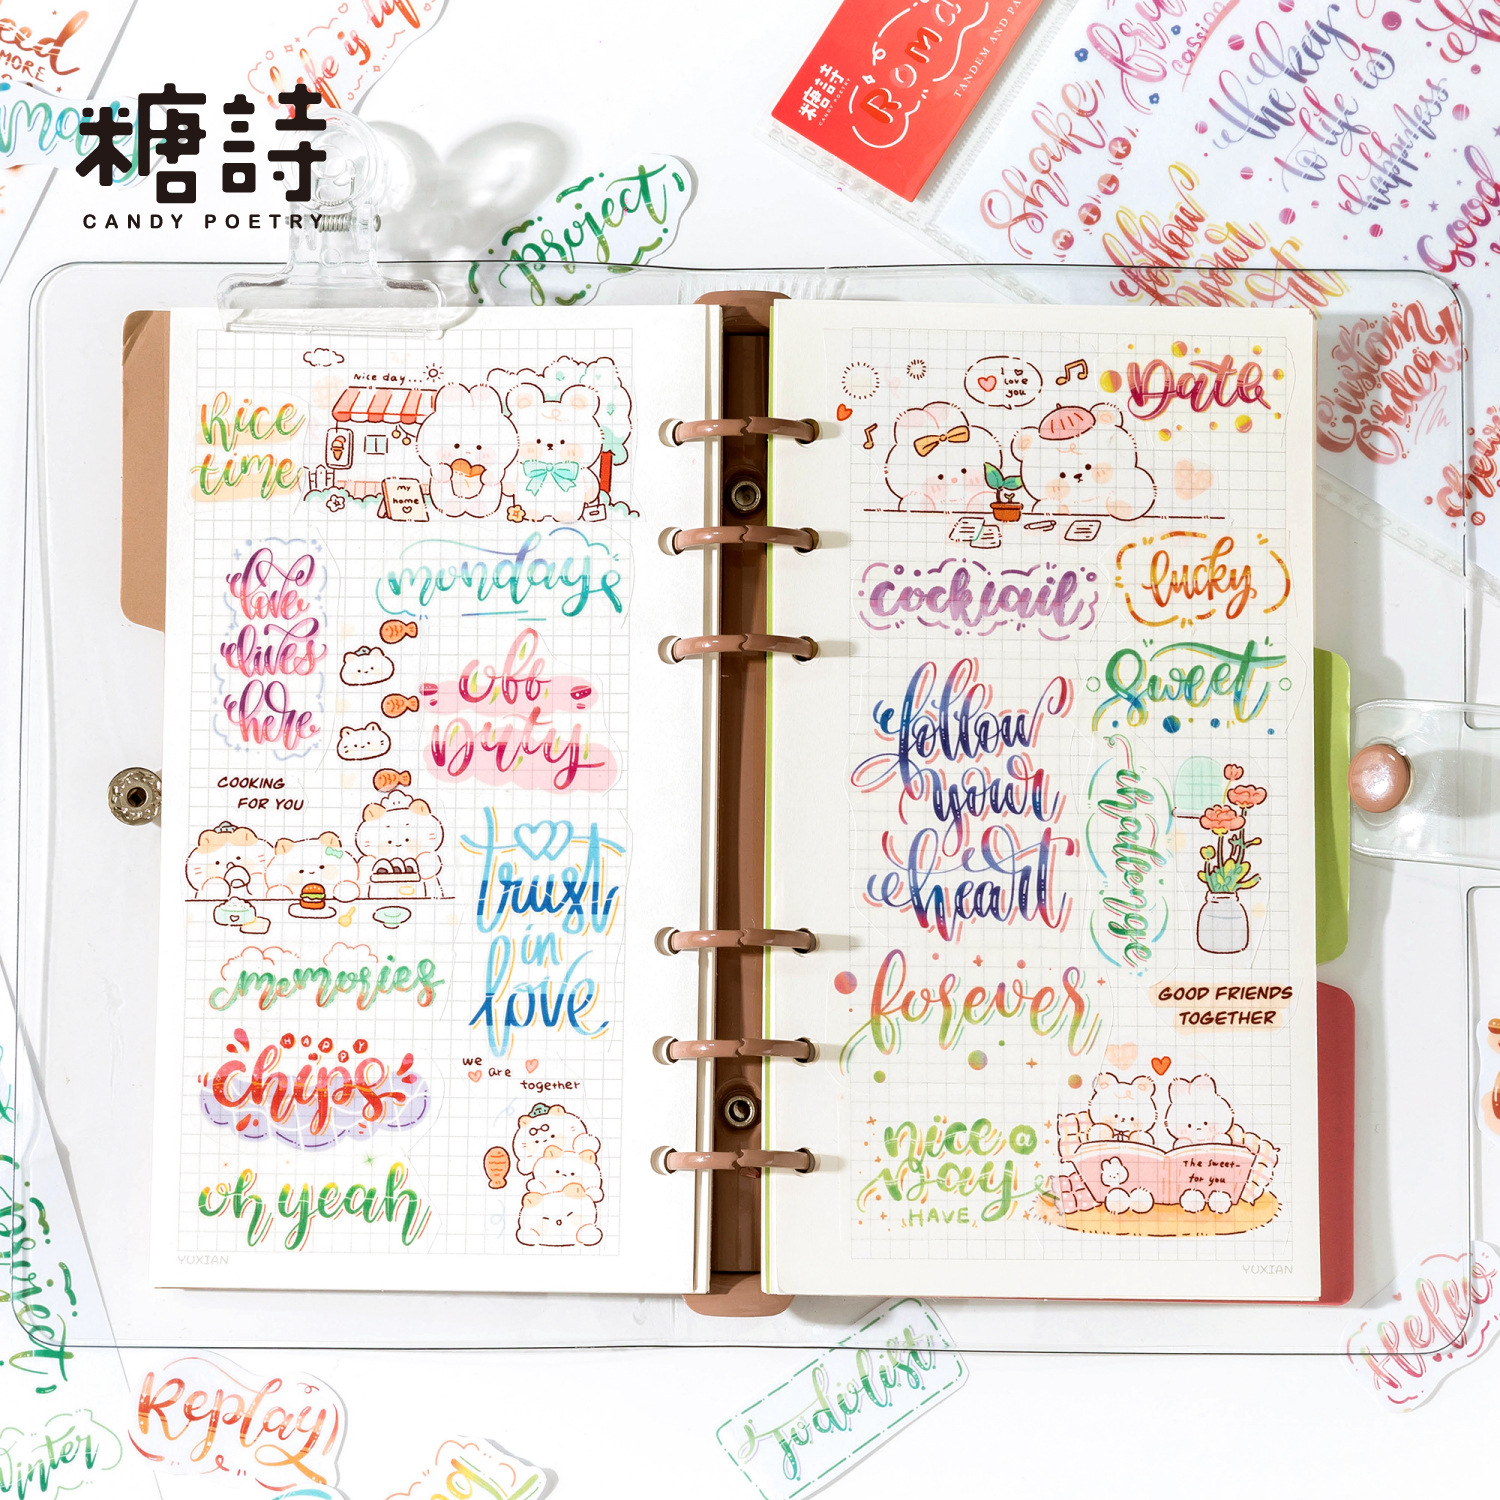 MORE
life is
糖詩
CANDY POETRY
project
糖詩
CANDY POETRY
Roma
TANDEM AND PA
Shake
the key
to life is
happiness
Good
follow
your
Custom
order!
Rice
time
Nice day...
my
home
love
lives
here
monday
off
Duty
COOKING
FOR YOU
trust
in
love
memories
HAPPY
chips
oh yeah
we
are
together
YUXIAN
I
love
you
Date
cocktail
lucky
sweet
follow
your
heart
challenge
forever
GOOD FRIENDS
TOGETHER
nice a
Day
HAVE
The sweet-
for you
YUXIAN
Replay
Winter
to do list
Hello